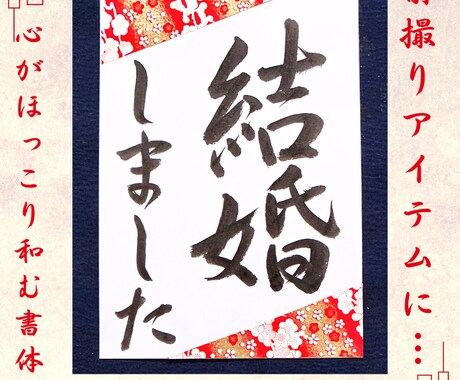 撮りアイテムに…
結婚
しました
心がほっこり和む書体